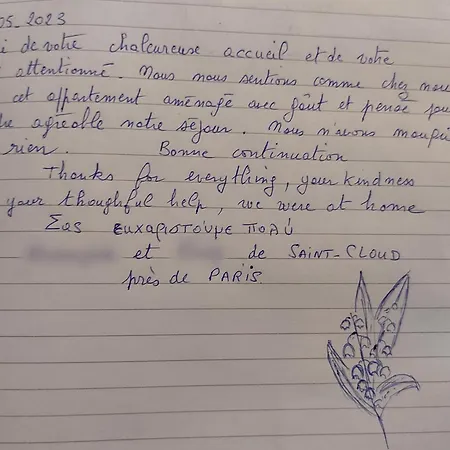 05_2023
de votre chaleureuse accueil et de votre
attentionné. Nous nous sentions comme chez nous
cet appartement aménagé avec goût et pensé pour
agréable notre séjour. Nous n'avons manqué
rien. Bonne continuation
Thanks for everything, your kindness
your thoughful help, we were at home
Σας ευχαριστούμε πολύ
et de SAINT-CLOUD
près de PARIS